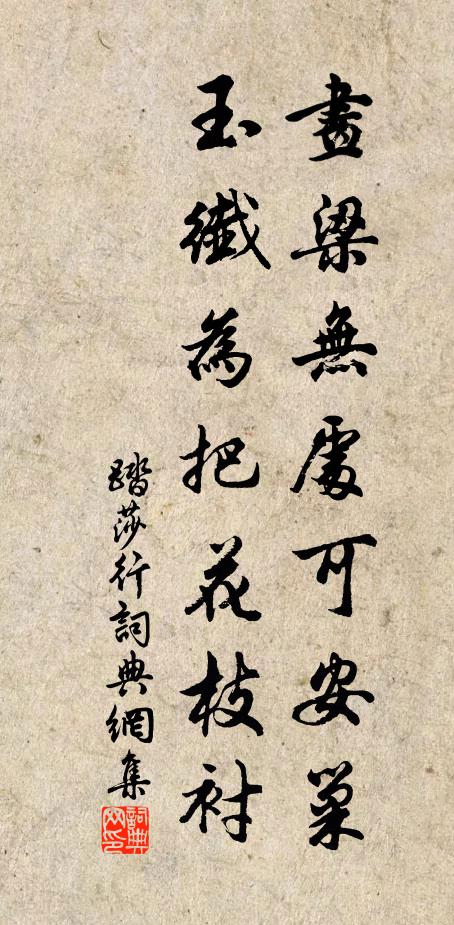 畫梁無處可安巢
玉纖為把花枝襯
踏莎行詞典網集
詞典網印